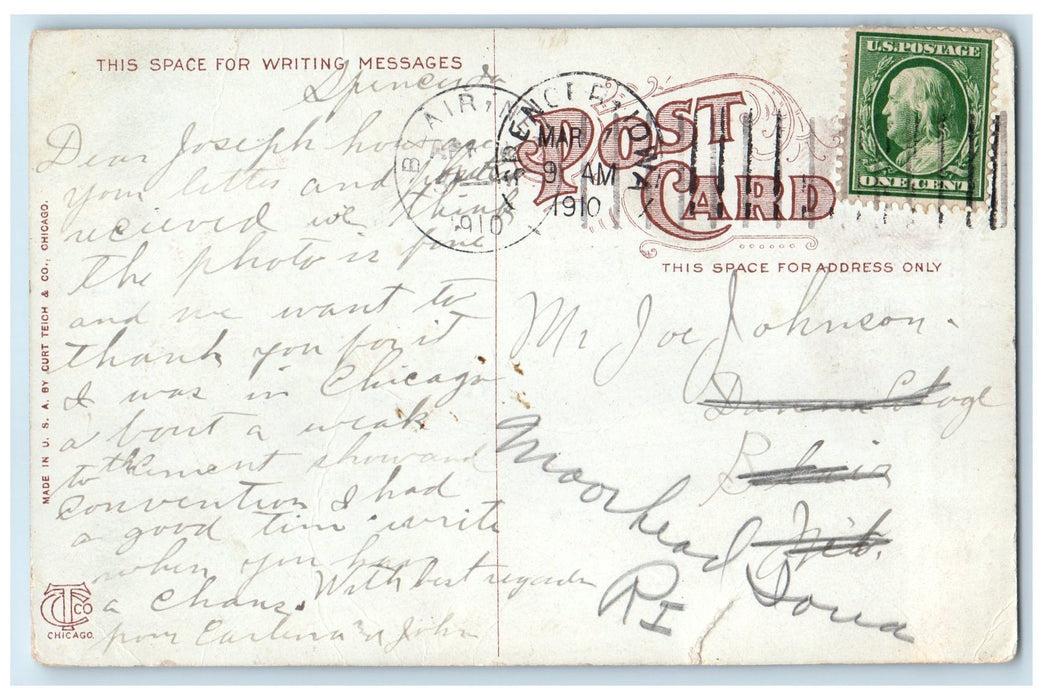 THIS SPACE FOR WRITING MESSAGES
Dear Joseph
your letter and
recieved we think
the photo is fine
and we want to
thank you for it
I was in Chicago
a bout a weak
to the cement show and
convention I had
a good time write
when you have
a chans. With best regards
from John
MADE IN U. S. A. BY CURT TEICH & CO., CHICAGO.
CTCO
CHICAGO.
BLAIR, N
1910
SPENCER, IOWA
MAR
9 AM
1910
POST
CARD
U.S.POSTAGE
ONE CENT
THIS SPACE FOR ADDRESS ONLY
Mr Joe Johnson.
Dana Cologe
Blair
Neb.
Moorhead Iowa
R I